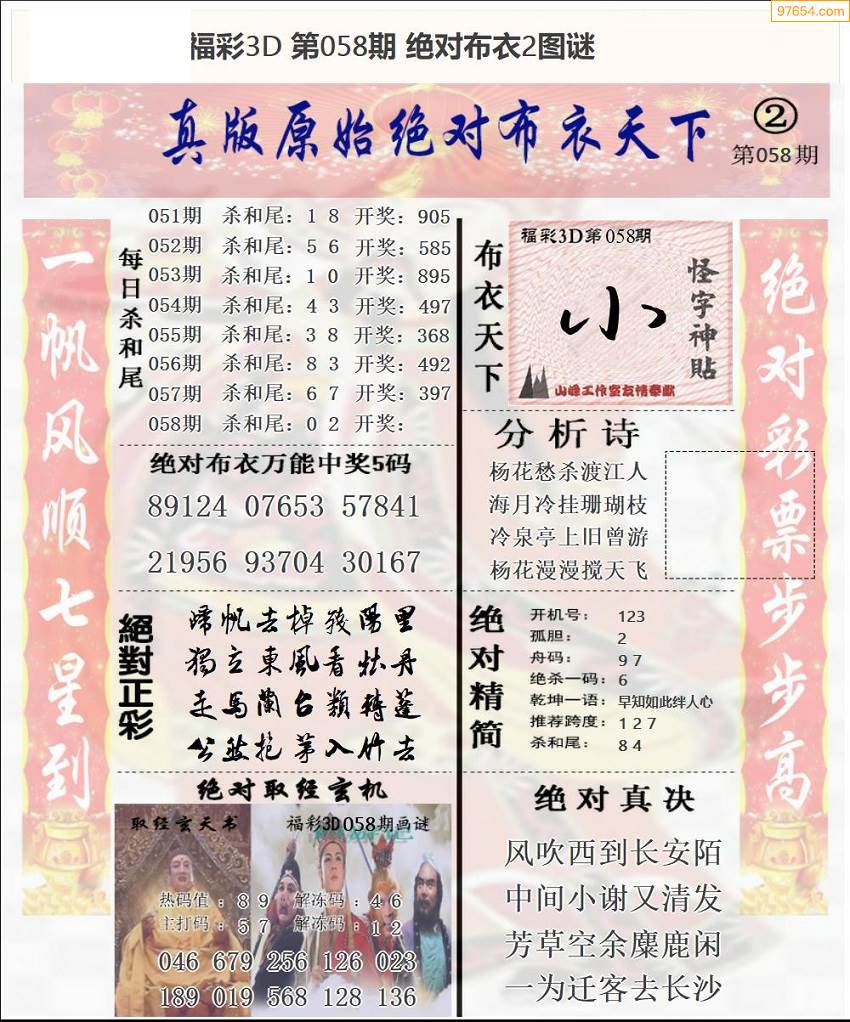 97654.com
福彩3D 第058期 绝对布衣2图谜
真版原始绝对布衣天下
②
第058期
一帆风顺七星到
每日杀和尾
051期 杀和尾：1 8 开奖：905
052期 杀和尾：5 6 开奖：585
053期 杀和尾：1 0 开奖：895
054期 杀和尾：4 3 开奖：497
055期 杀和尾：3 8 开奖：368
056期 杀和尾：8 3 开奖：492
057期 杀和尾：6 7 开奖：397
058期 杀和尾：0 2 开奖：
绝对布衣万能中奖5码
89124 07653 57841
21956 93704 30167
絕對正彩
歸帆去棹殘陽里
獨立東風看牡丹
走馬蘭台類轉蓬
公然抱茅入竹去
绝对取经玄机
取经玄天书
福彩3D058期画谜
热码值：8 9 解冻码：4 6
主打码：5 7 解冻码：1 2
046 679 256 126 023
189 019 568 128 136
布衣天下
福彩3D第058期
小
怪字神贴
山峰工作室友情奉献
分析诗
杨花愁杀渡江人
海月冷挂珊瑚枝
冷泉亭上旧曾游
杨花漫漫搅天飞
绝对精简
开机号： 123
孤胆： 2
舟码： 9 7
绝杀一码：6
乾坤一语：早知如此绊人心
推荐跨度：1 2 7
杀和尾： 8 4
绝对真决
风吹西到长安陌
中间小谢又清发
芳草空余麋鹿闲
一为迁客去长沙
绝对彩票步步高